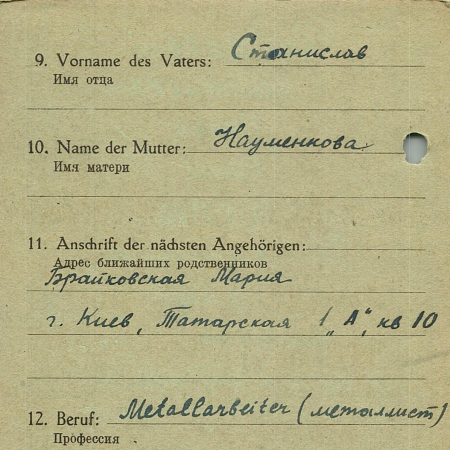 9. Vorname des Vaters: Станислав
Имя отца
10. Name der Mutter: Науменкова
Имя матери
11. Anschrift der nächsten Angehörigen:
Адрес ближайших родственников
Брайковская Мария
г. Киев, Татарская 1 „А", кв 10
12. Beruf: Metallarbeiter (металлист)
Профессия